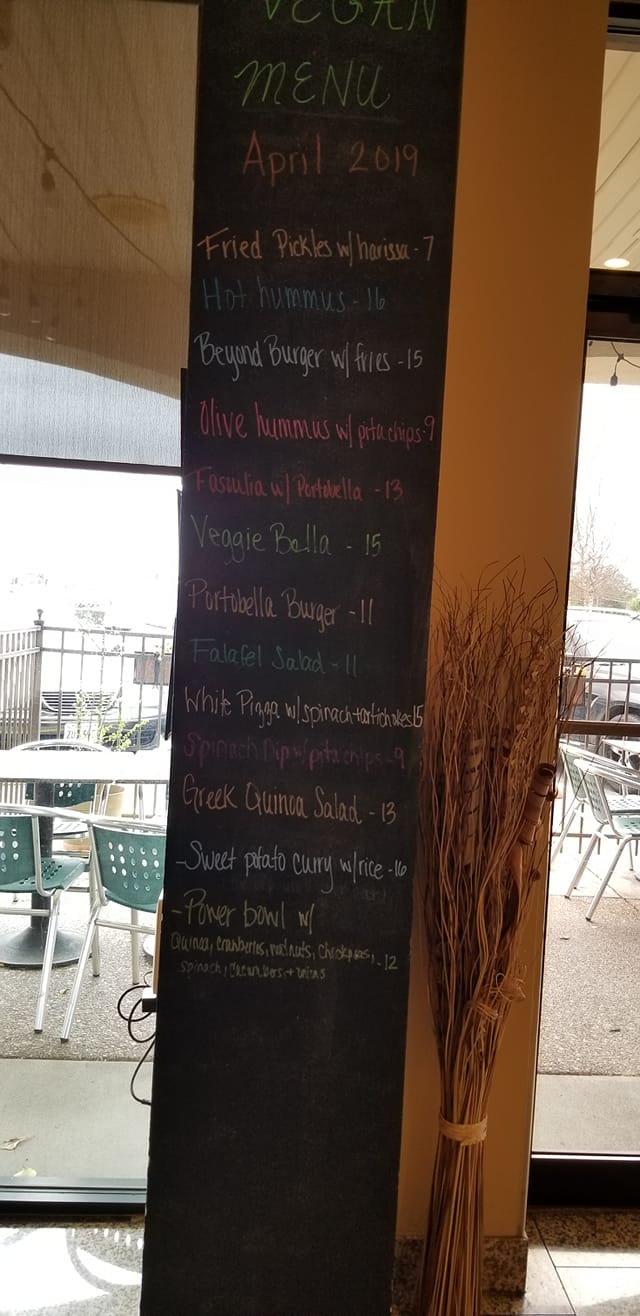 VEGAN
MENU
April 2019
Fried Pickles w/ harissa - 7
Hot hummus - 16
Beyond Burger w/ fries - 15
Olive hummus w/ pita chips - 9
Fasoulia w/ Portobella - 13
Veggie Balla - 15
Portobella Burger - 11
Falafel Salad - 11
White Pizza w/ spinach + artichokes 15
Spinach Dip w/ pita chips - 9
Greek Quinoa Salad - 13
- Sweet potato curry w/ rice - 16
- Power bowl w/
Quinoa, cranberries, walnuts, chickpeas, - 12
spinach, cucumbers + onions